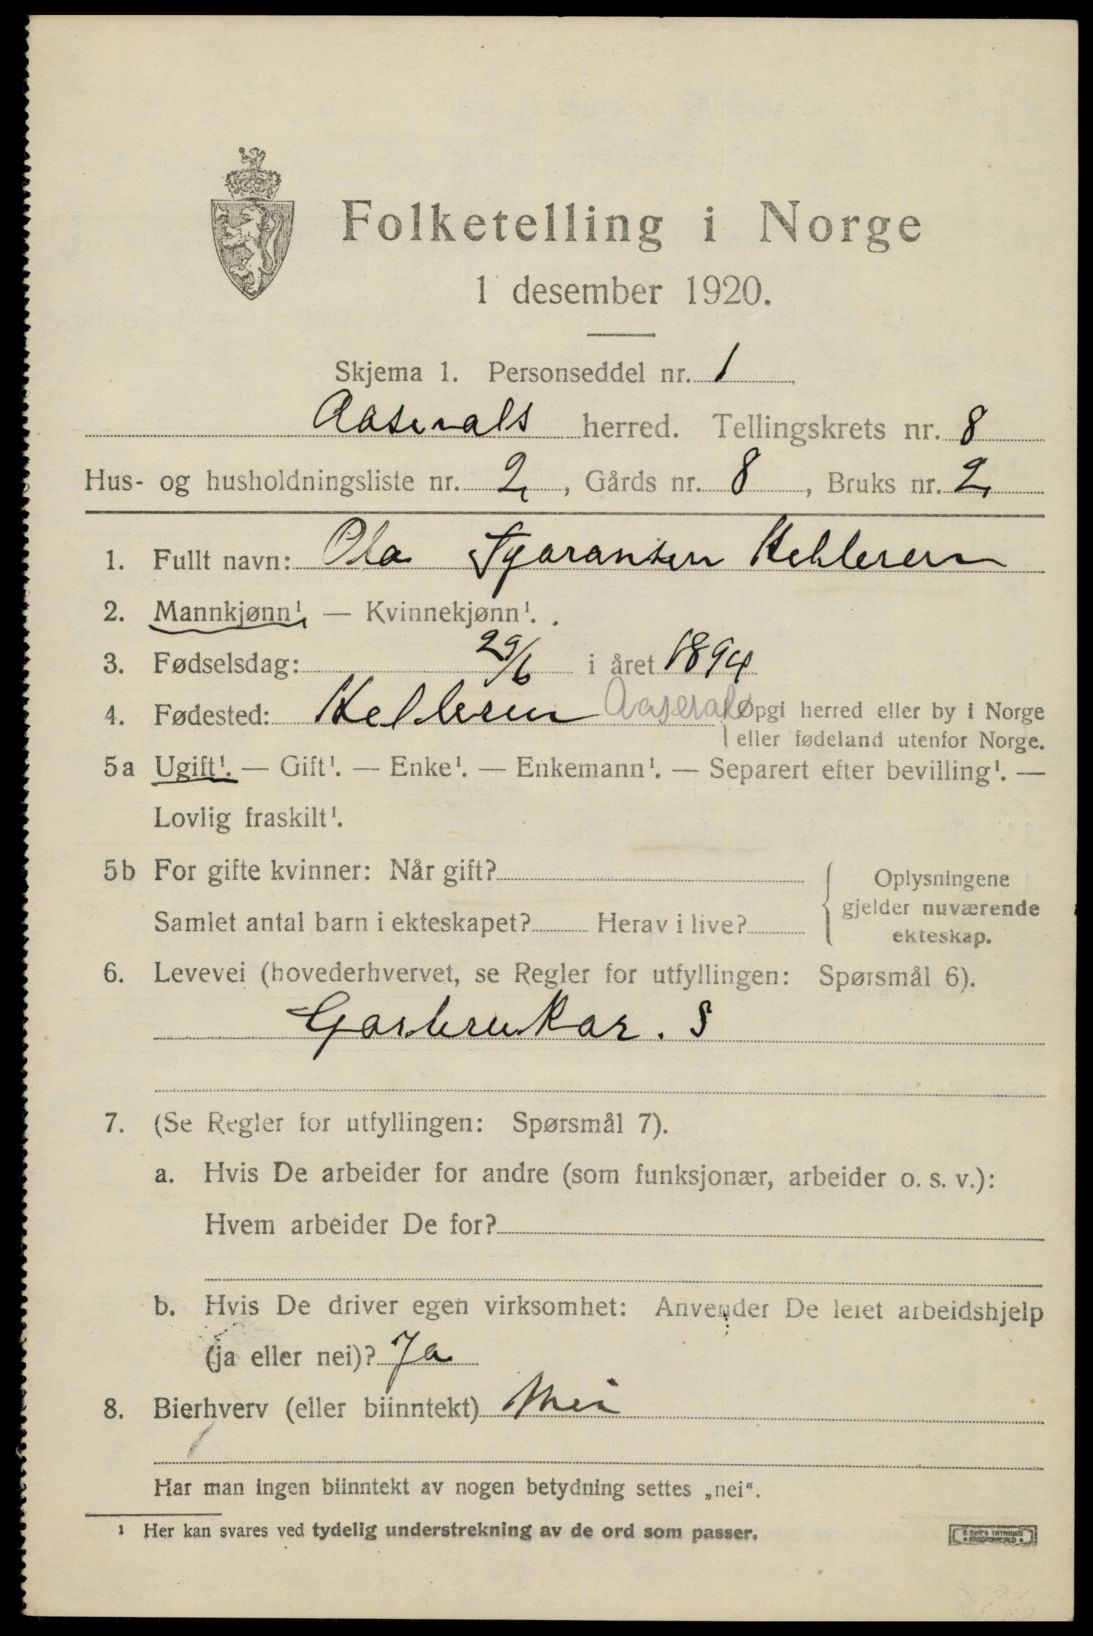 Folketelling i Norge
1 desember 1920.
Skjema 1. Personseddel nr. 1
Aaserals herred. Tellingskrets nr. 8
Hus- og husholdningsliste nr. 2, Gårds nr. 8, Bruks nr. 2
1. Fullt navn: Ola Tjaransen Helleren
2. Mannkjønn¹ — Kvinnekjønn¹.
3. Fødselsdag: 29/6 i året 1894
4. Fødested: Helleren Aaserals { Opgi herred eller by i Norge
eller fødeland utenfor Norge.
5a Ugift¹. — Gift¹. — Enke¹. — Enkemann¹. — Separert efter bevilling¹. —
Lovlig fraskilt¹.
5b For gifte kvinner: Når gift?
Samlet antal barn i ekteskapet? Herav i live?
Oplysningene
gjelder nuværende
ekteskap.
6. Levevei (hovederhvervet, se Regler for utfyllingen: Spørsmål 6).
Garbrukar. S
7. (Se Regler for utfyllingen: Spørsmål 7).
a. Hvis De arbeider for andre (som funksjonær, arbeider o. s. v.):
Hvem arbeider De for?
b. Hvis De driver egen virksomhet: Anvender De leiet arbeidshjelp
(ja eller nei)? Ja
8. Bierhverv (eller biinntekt) Nei
Har man ingen biinntekt av nogen betydning settes „nei“.
¹ Her kan svares ved tydelig understrekning av de ord som passer.